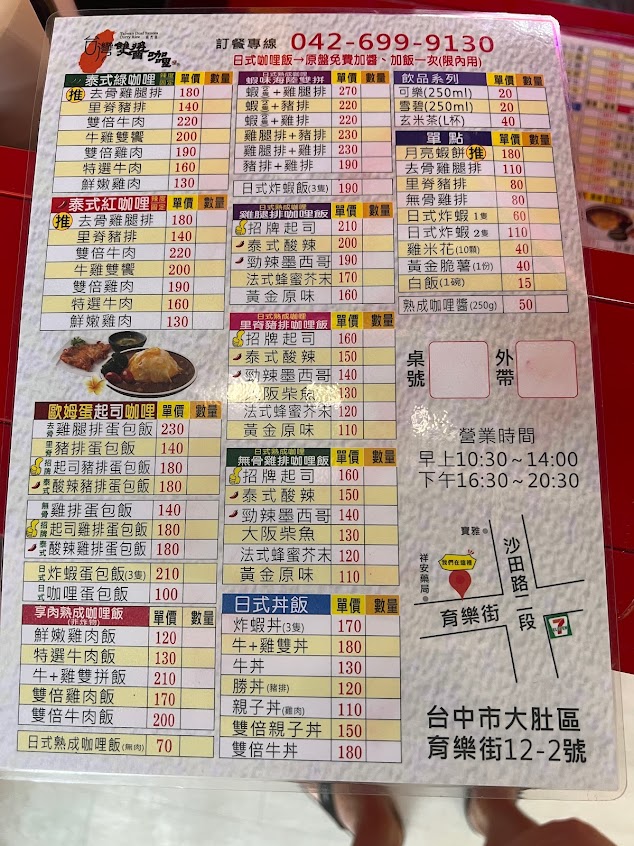 台灣雙醬咖哩
訂餐專線 042-699-9130
日式咖哩飯→原盤免費加醬、加飯一次(限內用)
泰式綠咖哩 單價 數量
推 去骨雞腿排 180
里脊豬排 140
雙倍牛肉 220
牛雞雙饗 200
雙倍雞肉 190
特選牛肉 160
鮮嫩雞肉 130
泰式紅咖哩 單價 數量
推 去骨雞腿排 180
里脊豬排 140
雙倍牛肉 220
牛雞雙饗 200
雙倍雞肉 190
特選牛肉 160
鮮嫩雞肉 130
歐姆蛋起司咖哩 單價 數量
去骨 雞腿排蛋包飯 230
里脊 豬排蛋包飯 140
招牌 起司豬排蛋包飯 180
泰式 酸辣豬排蛋包飯 180
無骨 雞排蛋包飯 140
招牌 起司雞排蛋包飯 180
泰式 酸辣雞排蛋包飯 180
日式 炸蝦蛋包飯(3隻) 210
日式 咖哩蛋包飯 100
享肉熟成咖哩飯 單價 數量
(非炸物)
鮮嫩雞肉飯 120
特選牛肉飯 130
牛+雞雙拼飯 210
雙倍雞肉飯 170
雙倍牛肉飯 200
日式熟成咖哩飯(無肉) 70
日式熟成咖哩
蝦味海陸雙拼 單價 數量
蝦+雞腿排 270
蝦+豬排 220
蝦+雞排 220
雞腿排+豬排 230
雞腿排+雞排 230
豬排+雞排 190
日式炸蝦飯(3隻) 190
日式熟成咖哩
雞腿排咖哩飯 單價 數量
招牌起司 210
泰式酸辣 200
勁辣墨西哥 190
法式蜂蜜芥末 170
黃金原味 160
日式熟成咖哩
里脊豬排咖哩飯 單價 數量
招牌起司 160
泰式酸辣 150
勁辣墨西哥 140
大阪柴魚 130
法式蜂蜜芥末 120
黃金原味 110
日式熟成咖哩
無骨雞排咖哩飯 單價 數量
招牌起司 160
泰式酸辣 150
勁辣墨西哥 140
大阪柴魚 130
法式蜂蜜芥末 120
黃金原味 110
日式丼飯 單價 數量
炸蝦丼(3隻) 170
牛+雞雙丼 180
牛丼 130
勝丼(豬排) 120
親子丼(雞肉) 110
雙倍親子丼 150
雙倍牛丼 180
飲品系列 單價 數量
可樂(250ml) 20
雪碧(250ml) 20
玄米茶(L杯) 40
單點 單價 數量
月亮蝦餅 推 180
去骨雞腿排 110
里脊豬排 80
無骨雞排 80
日式炸蝦 1隻 60
日式炸蝦 2隻 110
雞米花(10顆) 40
黃金脆薯(1份) 40
白飯(1碗) 15
熟成咖哩醬(250g) 50
桌號
外帶
營業時間
早上10:30~14:00
下午16:30~20:30
寶雅
祥安藥局
我們在這裡
沙田路一段
育樂街
7
台中市大肚區
育樂街12-2號